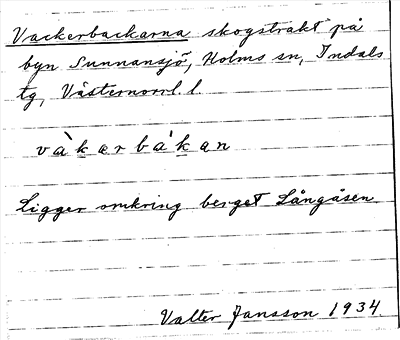 Vackerbackarna skogstrakt på
byn Sunnansjö, Holms sn, Indals
tg, Västernorrl. l.
vàkarbàkan
Ligger omkring berget Långåsen.
Valter Jansson 1934.